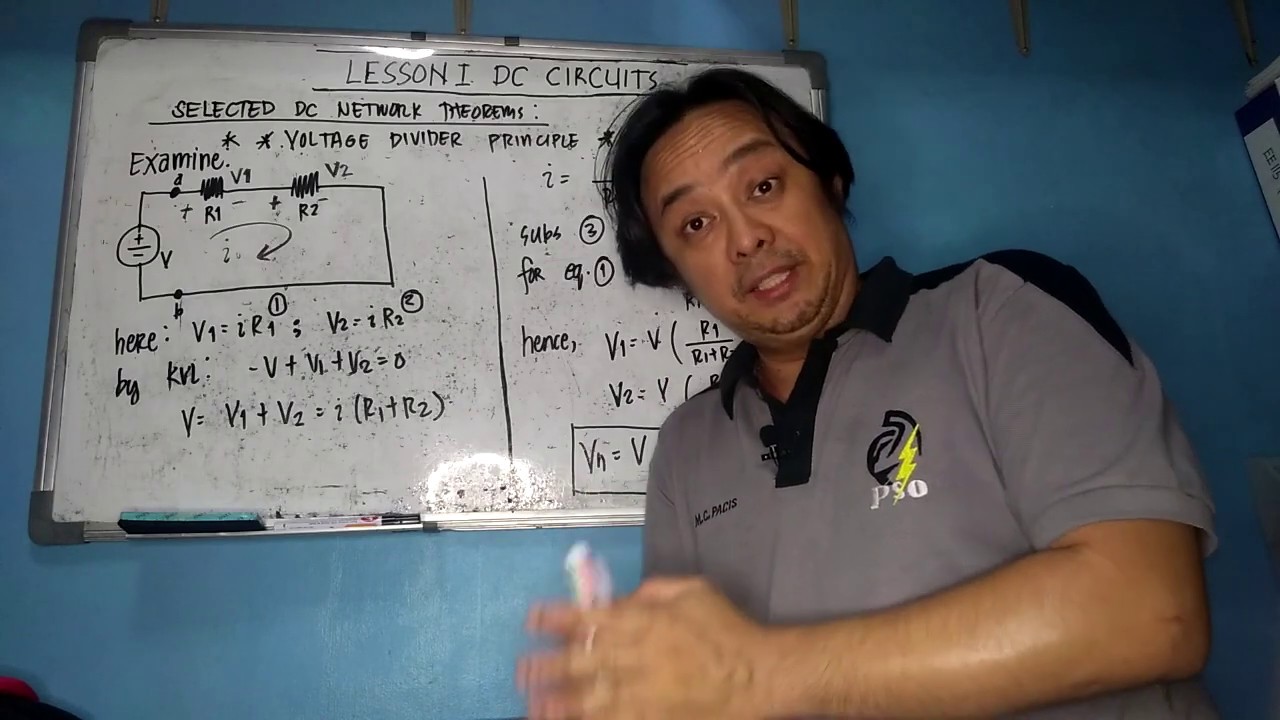 LESSON I. DC CIRCUITS
SELECTED DC NETWORK THEOREMS:
* * VOLTAGE DIVIDER PRINCIPLE *
Examine.
a V1 V2
+ R1 - + R2 -
+ - V i
b
here: V1 = i R1 ① ; V2 = i R2 ②
by KVL: -V + V1 + V2 = 0
V = V1 + V2 = i (R1+R2)
i =
subs ③
for eq. ①
hence, V1 = V ( R1 / R1+R
V2 = V ( R
Vn = V
M.C. PACIS
PSO